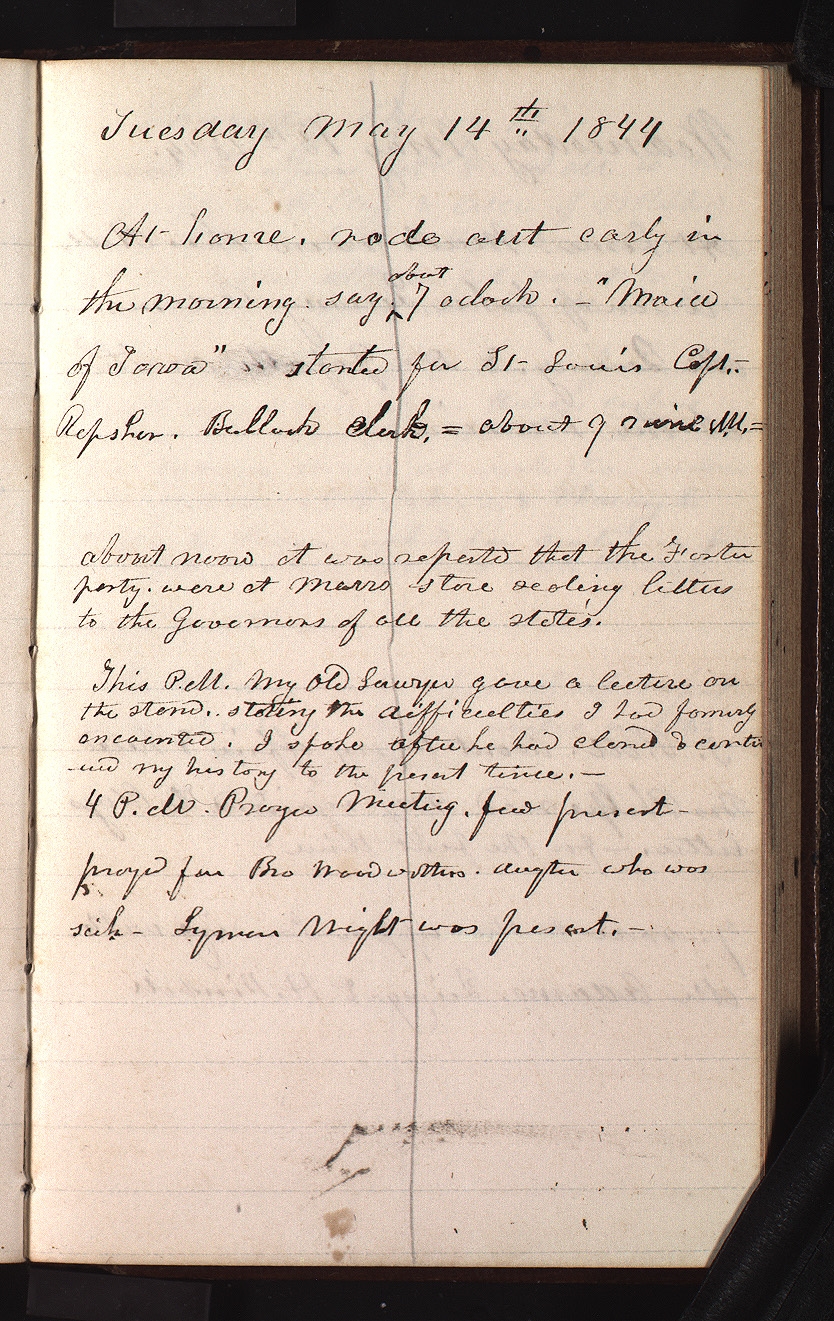 Tuesday May 14th 1844
At home. rode out early in
the morning. say about 7 oclock. - "Maid
of Iowa" started for St Louis Capt.
Repsher. Bullock clerk. = about 9 nine A.M. =
about noon it was reported that the Foster
party. were at Marrs store sealing letters
to the Governors of all the states.
This P.M. My Old Lawyer gave a lecture on
the stand. stating the difficulties I had formerly
encounted. I spoke after he had closed & contin
ued my history to the present time. -
4 P.M. Prayer Meeting. few present -
prayed for Bro Woodworths. daugter who was
sick - Lyman Wight was present. -